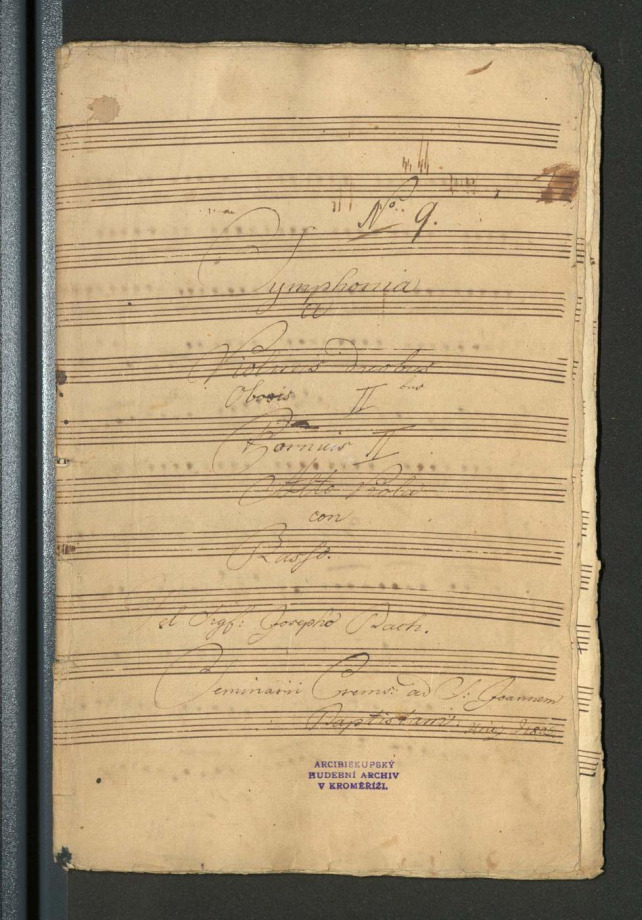 No. 9.
Symphonia
a
Violinis duobus
Obois II bus
Cornuis II
Alto Viola
con
Basso.
Del Sigf: Josepho Bach.
Seminarii Crems: ad S: Joannem
Baptistam.
ARCIBISKUPSKÝ
HUDEBNÍ ARCHIV
V KROMĚŘÍŽI.